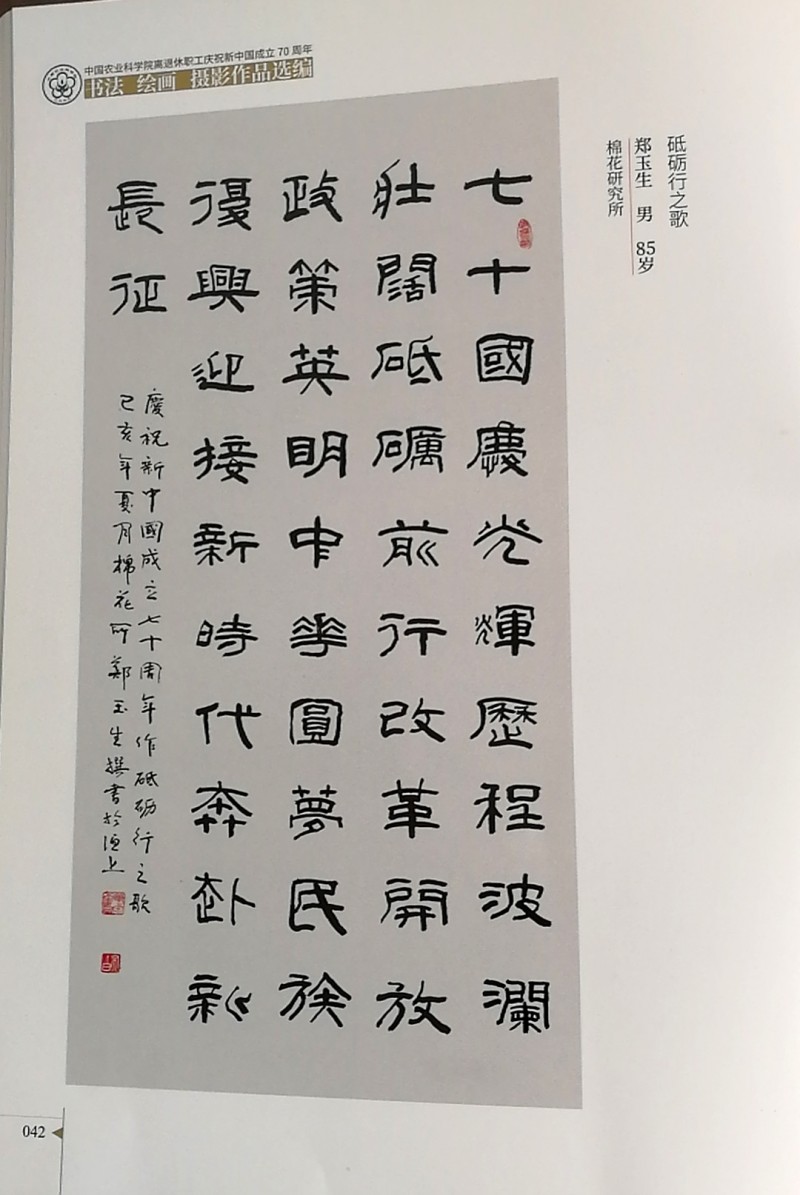 中国农业科学院离退休职工庆祝新中国成立70周年
书法 绘画 摄影作品选编
砥砺行之歌
郑玉生 男 85岁
棉花研究所
七十國慶光輝歷程波瀾
壯闊砥礪前行改革開放
政策英明中華圓夢民族
復興迎接新時代奔赴新
長征
慶祝新中國成立七十周年作砥砺行之歌
己亥年夏月棉花所鄭玉生撰書於洹上
042